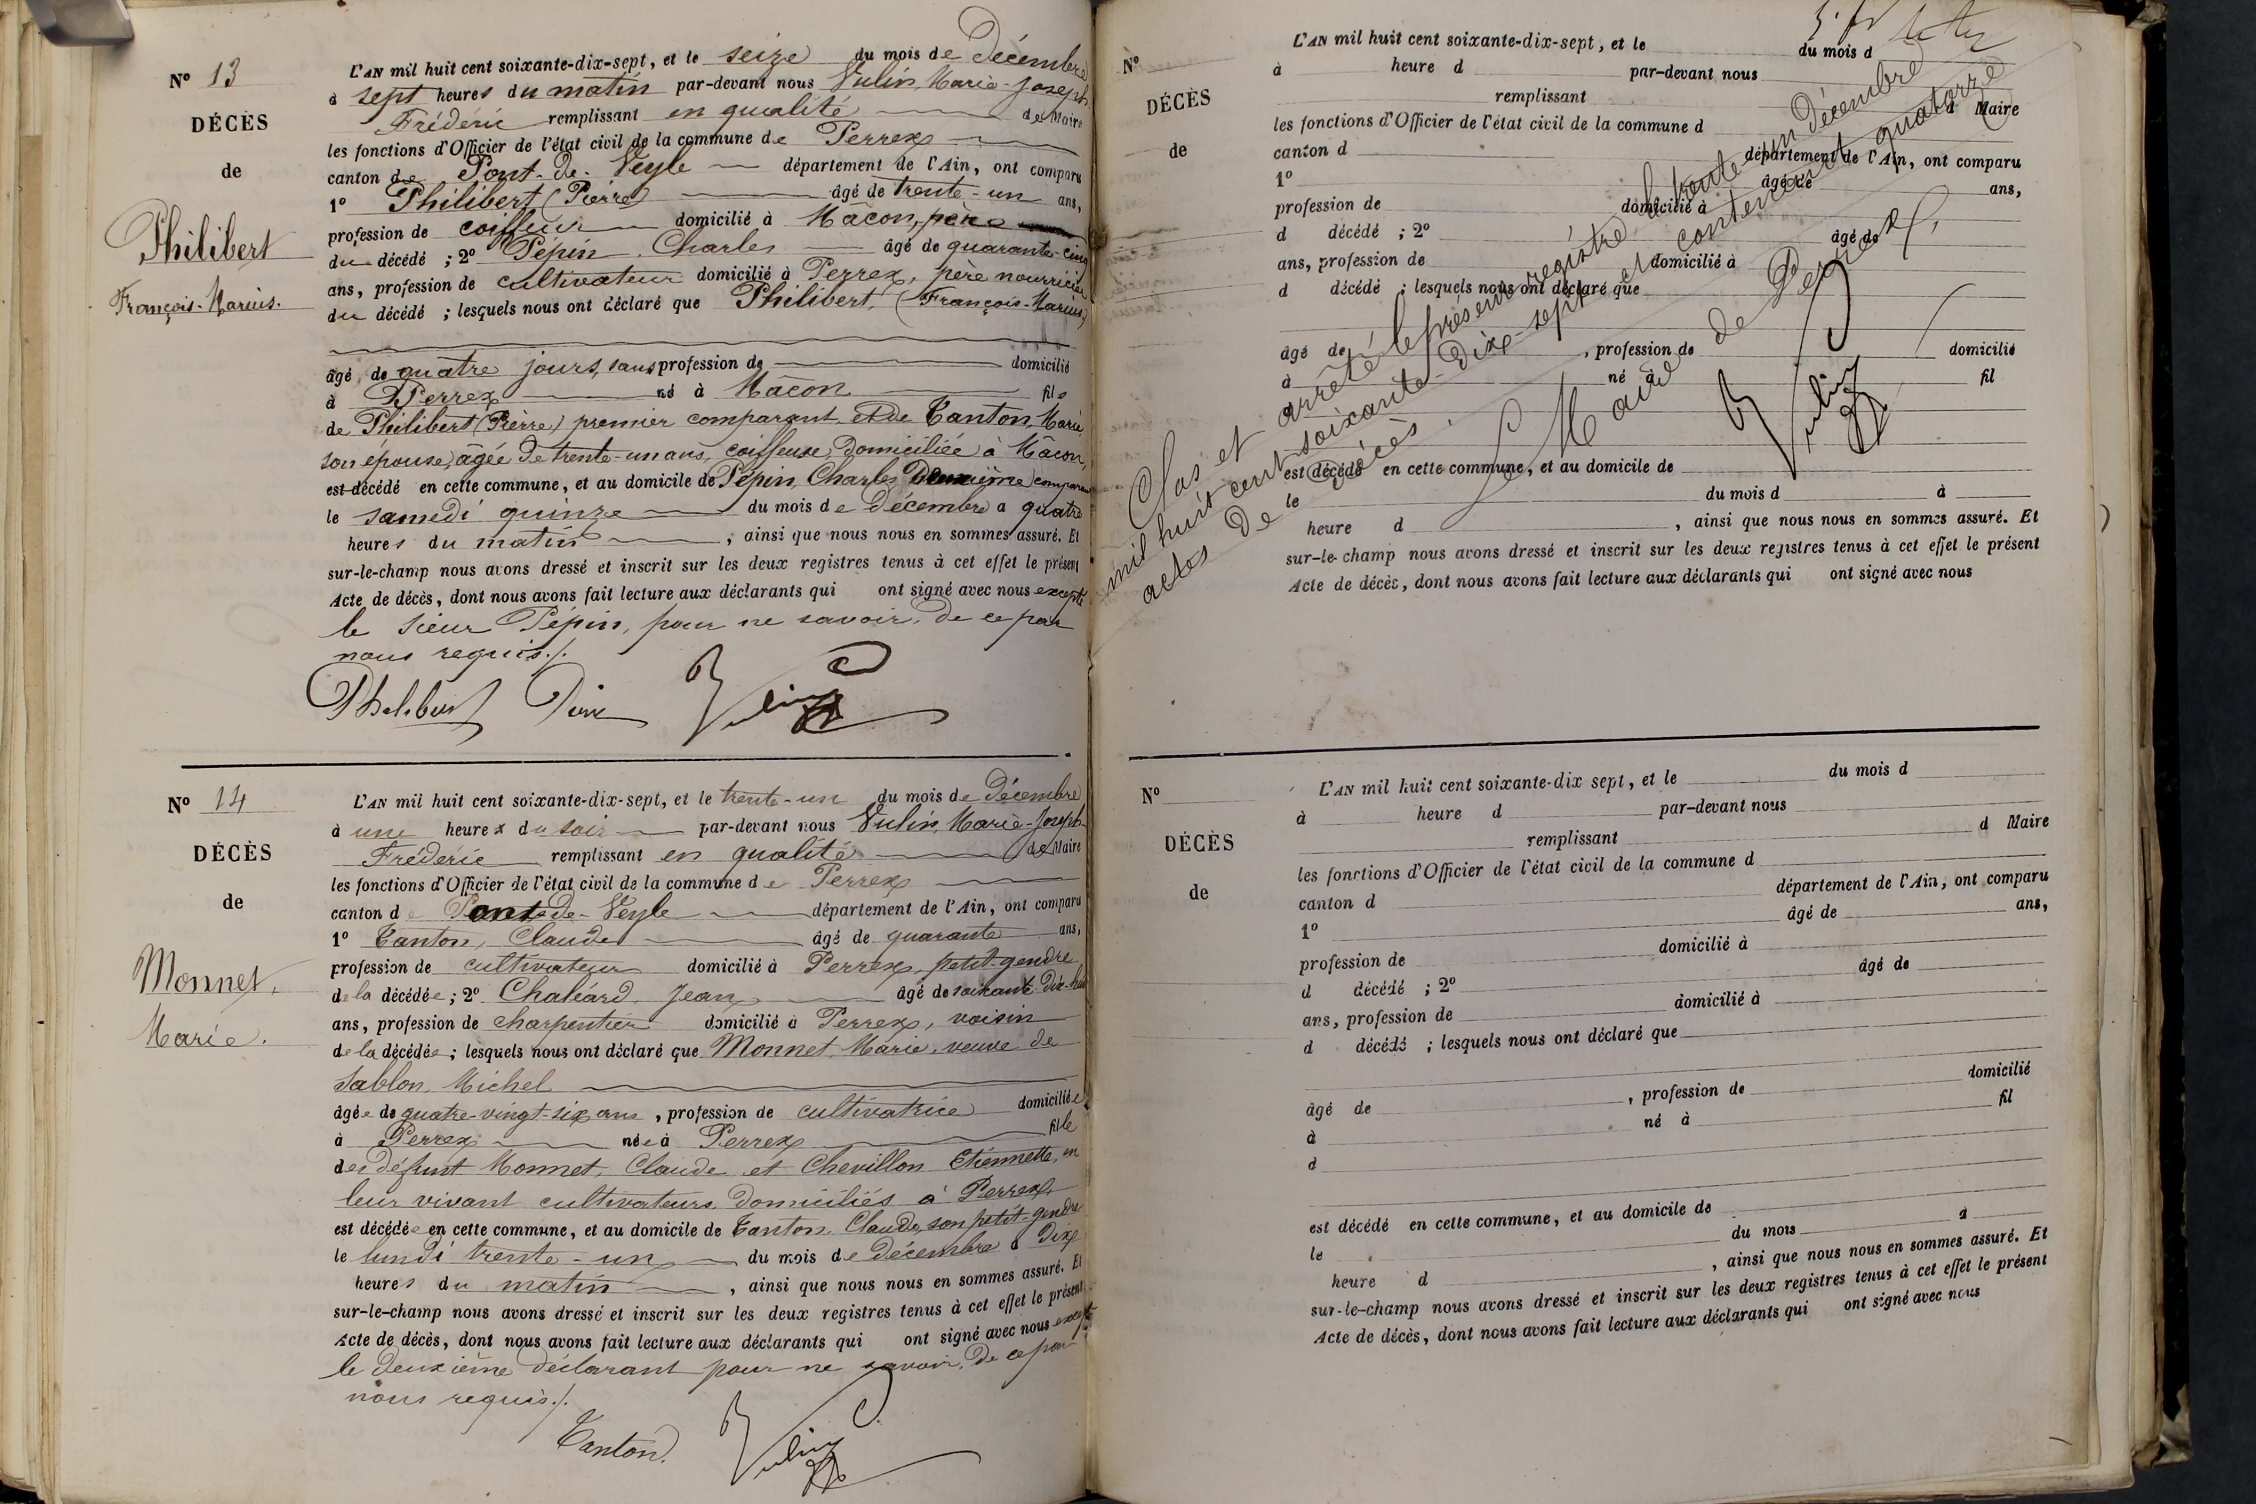 N° 13
DÉCÈS
de
Philibert
François-Marius.
L'AN mil huit cent soixante-dix-sept, et le seize du mois de Décembre
à sept heures du matin par-devant nous Vulin, Marie-Joseph
Fréderic remplissant en qualité de Maire
les fonctions d'Officier de l'état civil de la commune de Perrex
canton de Pont-de-Veyle département de l'Ain, ont comparu
1° Philibert (Pierre) âgé de trente-un ans,
profession de coiffeur domicilié à Mâcon, père
du décédé ; 2° Pépin, Charles âgé de quarante-cinq
ans, profession de cultivateur domicilié à Perrex, père nourricier
du décédé ; lesquels nous ont déclaré que Philibert, (François-Marius)
âgé de quatre jours, sans profession de domicilié
à Perrex né à Mâcon fils
de Philibert (Pierre) premier comparant et de Tanton, Marie
son épouse, âgée de trente-un ans, coiffeuse, domiciliée à Mâcon,
est décédé en cette commune, et au domicile de Pépin, Charles Deuxième comparant
le samedi quinze du mois de Décembre à quatre
heures du matin , ainsi que nous nous en sommes assuré. Et
sur-le-champ nous avons dressé et inscrit sur les deux registres tenus à cet effet le présent
Acte de décès, dont nous avons fait lecture aux déclarants qui ont signé avec nous excepté
le sieur Pépin, pour ne savoir, de ce par
nous requis./.
Philibert Pierre Vulin
N° 14
DÉCÈS
de
Monnet,
Marie.
L'AN mil huit cent soixante-dix-sept, et le trente-un du mois de Décembre
à une heure x du soir par-devant nous Vulin, Marie-Joseph-
Fréderic remplissant en qualité de Maire
les fonctions d'Officier de l'état civil de la commune de Perrex
canton de Pont-de-Veyle département de l'Ain, ont comparu
1° Tanton, Claude âgé de quarante ans,
profession de cultivateur domicilié à Perrex, petit-gendre
de la décédée ; 2° Chaléard, Jean, âgé de soixante-dix-huit
ans, profession de charpentier domicilié à Perrex, voisin
de la décédée ; lesquels nous ont déclaré que Monnet, Marie, veuve de
Sablon, Michel
âgée de quatre-vingt-six ans , profession de cultivatrice domiciliée
à Perrex née à Perrex fille
des défunt Monnet, Claude et Chevillon Etiennette, en
leur vivant cultivateurs domiciliés à Perrex,
est décédée en cette commune, et au domicile de Tanton, Claude, son petit-gendre
le lundi trente-un du mois de décembre à dix
heures du matin , ainsi que nous nous en sommes assuré. Et
sur-le-champ nous avons dressé et inscrit sur les deux registres tenus à cet effet le présent
Acte de décès, dont nous avons fait lecture aux déclarants qui ont signé avec nous excepté
le deuxième déclarant pour ne savoir, de ce par
nous requis./.
Tanton. Vulin
N°
DÉCÈS
de
L'AN mil huit cent soixante-dix-sept, et le du mois d
à heure d par-devant nous
remplissant d Maire
les fonctions d'Officier de l'état civil de la commune d
canton d département de l'Ain, ont comparu
1° âgé de ans,
profession de domicilié à
d décédé ; 2° âgé de
ans, profession de domicilié à
d décédé ; lesquels nous ont déclaré que
âgé de , profession de domicilié
à né à fil
est décédé en cette commune, et au domicile de
le du mois d à
heure d , ainsi que nous nous en sommes assuré. Et
sur-le-champ nous avons dressé et inscrit sur les deux registres tenus à cet effet le présent
Acte de décès, dont nous avons fait lecture aux déclarants qui ont signé avec nous
Clos et arrêté le présent registre le trente-un décembre
mil huit cent soixante-dix-sept et contenant quatorze
actes de décès.
Le Maire de Perrex,
Vulin
N°
DÉCÈS
de
L'AN mil huit cent soixante-dix sept, et le du mois d
à heure d par-devant nous
remplissant d Maire
les fonctions d'Officier de l'état civil de la commune d
canton d département de l'Ain, ont comparu
1° âgé de ans,
profession de domicilié à
d décédé ; 2° âgé de
ans, profession de domicilié à
d décédé ; lesquels nous ont déclaré que
âgé de , profession de domicilié
à né à fil
d
est décédé en cette commune, et au domicile de
le du mois à
heure d , ainsi que nous nous en sommes assuré. Et
sur-le-champ nous avons dressé et inscrit sur les deux registres tenus à cet effet le présent
Acte de décès, dont nous avons fait lecture aux déclarants qui ont signé avec nous